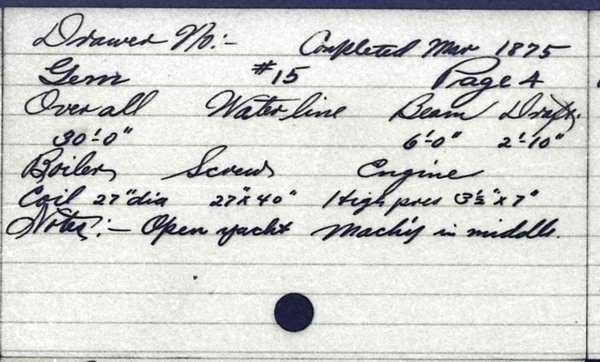 Drawer No:- Completed Mar 1875
Gem #15 Page 4
Over all Water line Beam Draft.
30'-0" 6'-0" 2'-10"
Boilers Screws Engine
Coil 27"dia 27"x40" High pres 3½"x7"
Notes:- Open yacht Mach'y in middle.